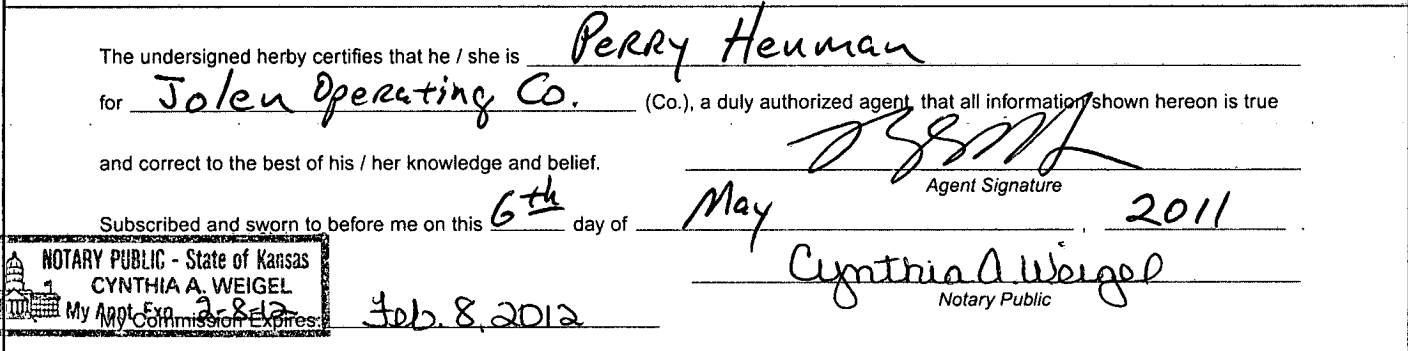 The undersigned herby certifies that he / she is Perry Henman
for Jolen Operating Co. (Co.), a duly authorized agent, that all information shown hereon is true
and correct to the best of his / her knowledge and belief.
Agent Signature
Subscribed and sworn to before me on this 6th day of May, 2011.
Cynthia A. Weigel
Notary Public
NOTARY PUBLIC - State of Kansas
CYNTHIA A. WEIGEL
My Appt. Exp. 2-8-12
My Commission Expires: Feb. 8, 2012